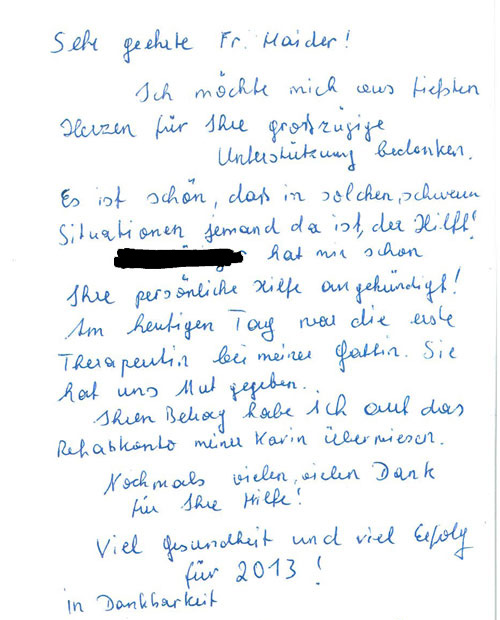 Sehr geehrte Fr. Haider!
Ich möchte mich aus tießten
Herzen für Ihre großzügige
Unterstützung bedanken.
Es ist schön, daß in solchen, schweren
Situationen jemand da ist, der Hilft!
hat mir schon
Ihre persönliche Hilfe angekündigt!
Am heutigen Tag war die erste
Therapeutin bei meiner Gattin. Sie
hat uns Mut gegeben..
Ihren Betrag habe ich auf das
Rehabkonto meiner Karin überwiesen.
Nochmals vielen, vielen Dank
für Ihre Hilfe!
Viel Gesundheit und viel Erfolg
für 2013!
in Dankbarkeit